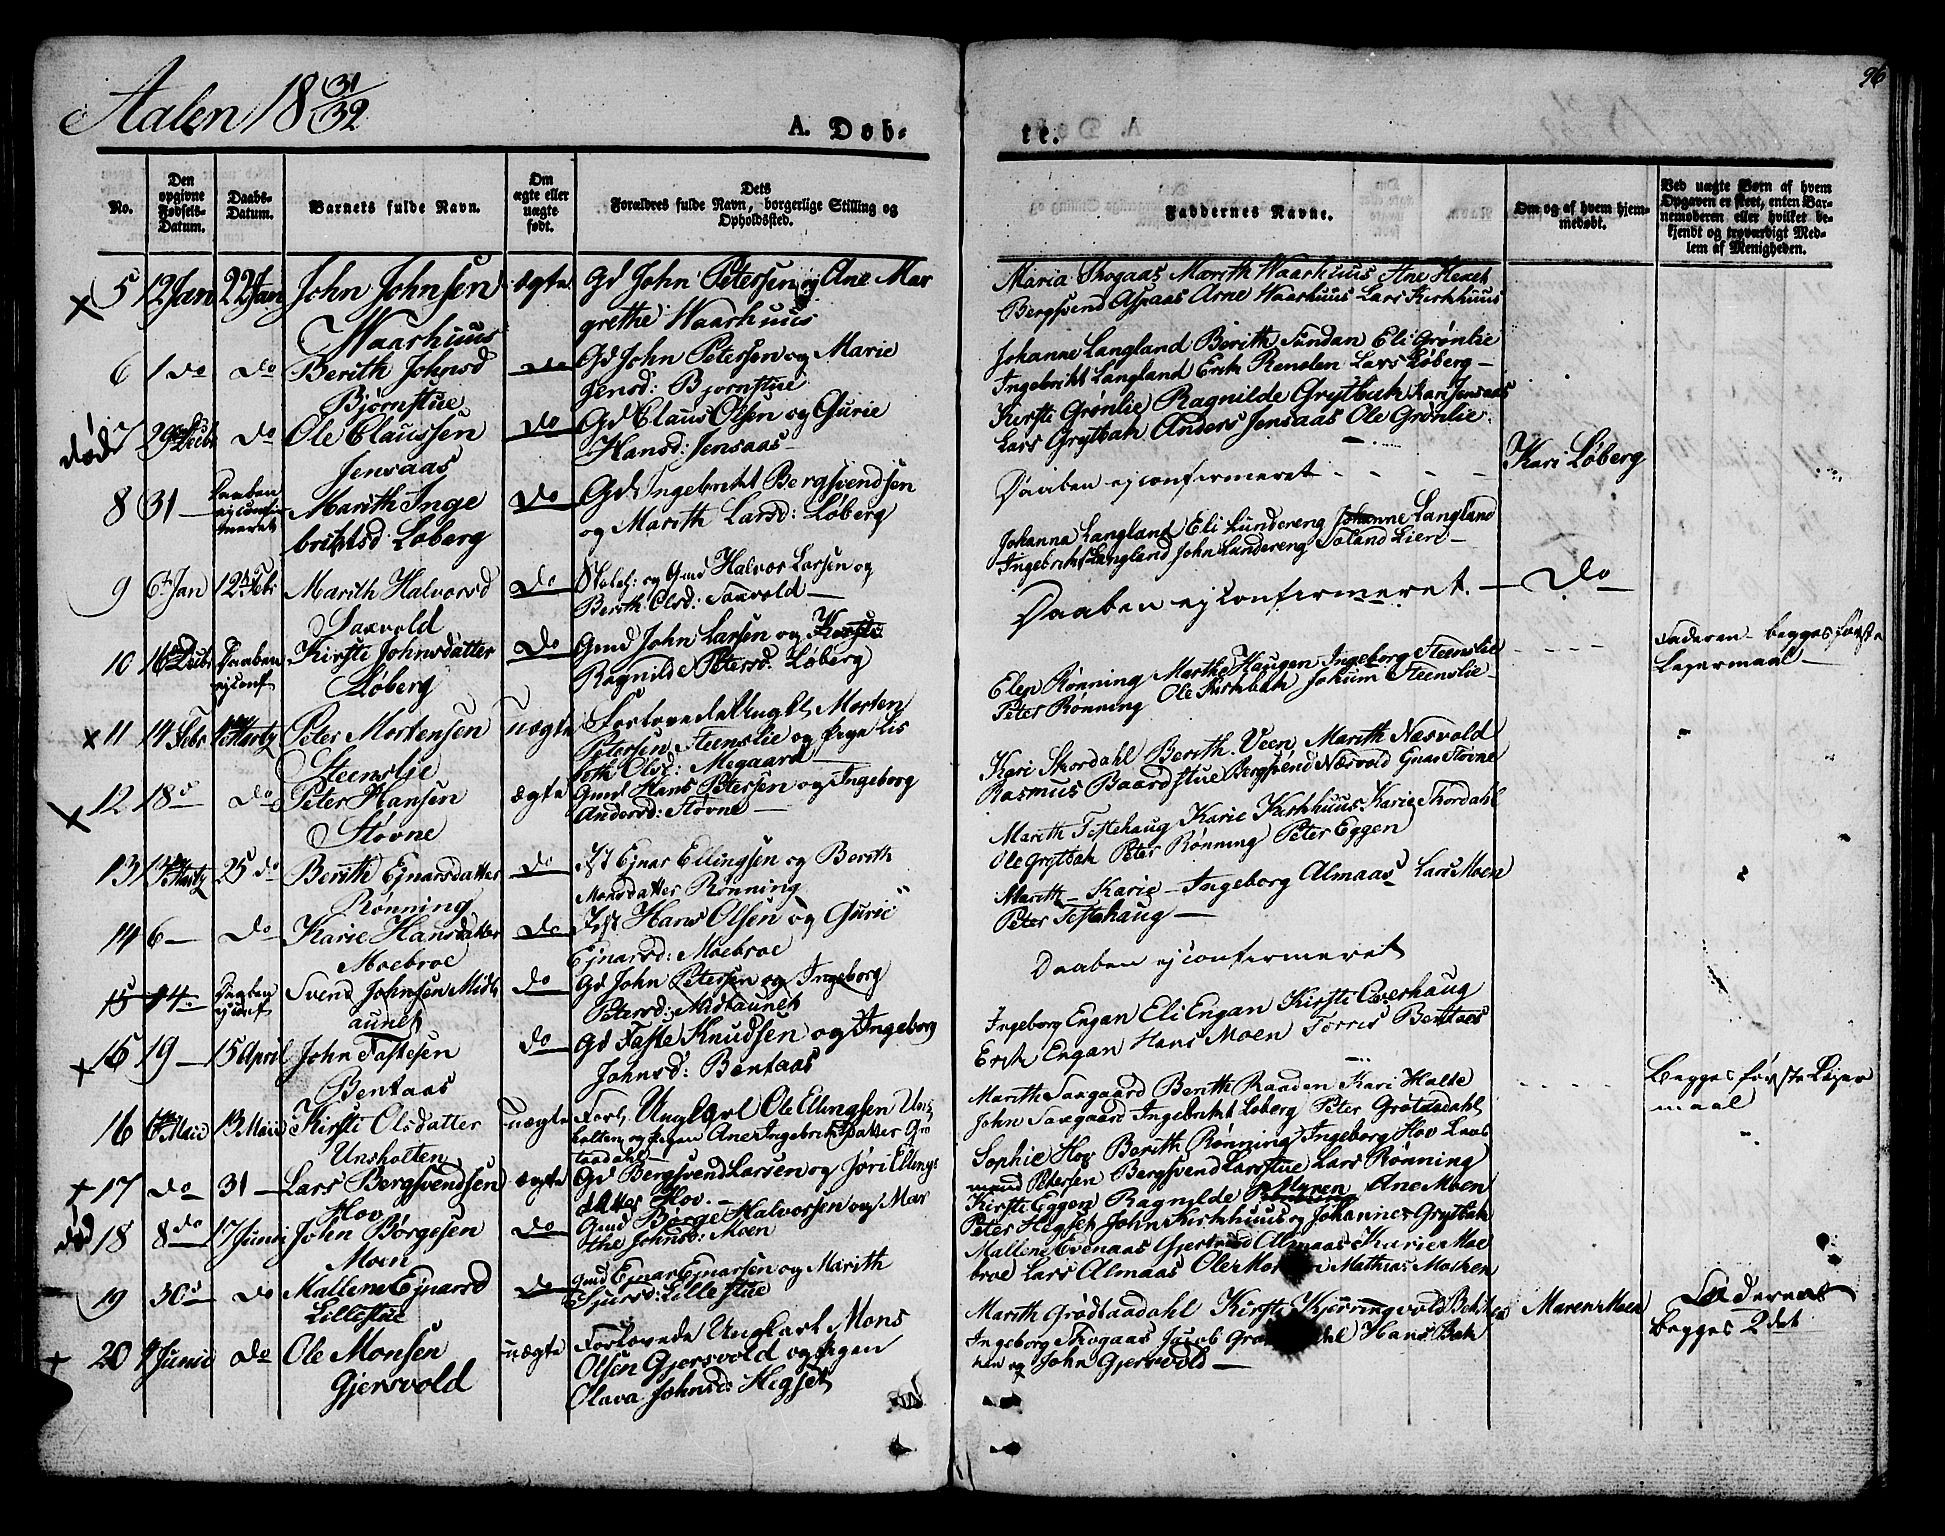 Aalen 18 31/32
96
A. Døb-
te.
No.
Den
opgivne
Fødsels-
Datum.
Daabs-
Datum.
Barnets fulde Navn.
Om
ægte eller
uægte
født.
Dets
Forældres fulde Navn, borgerlige Stilling og
Opholdssted.
Faddernes Navne.
Om og af hvem hjem-
medøbt.
Ved uægte Børn af hvem
Opgaven er skeet, enten Bar-
nemoderen eller hvilket be-
kjendt og troværdigt Med-
lem af Menigheden.
× 5 12 Jan 22 Jan John Johnsen ægte Gd John Petersen og Ane Mar
Waarhuus grethe Waarhuus
Maria Skogaas Marith Waarhuus Ane Hexet
Bergsvend Aspaas Arne Waarhuus Lars Kirkhuus
6 1 do do Berith Johnsd do Gd John Petersen og Marie
Bjørnstue Jensd: Bjørnstue
Johanne Langland Berith Sundan Eli Grønlie
Ingebrikt Langland Erik Renolen Lars Løberg –
død 7 29 Decbr do Ole Claussen do Gd Claus Olsen og Gurie
Jensaas Hansd: Jensaas
Kirsti Grønlie Ragnilde Grytbak Kari Jensaas
Lars Grytbak Anders Jensaas Ole Grønlie.
8 31 – Daaben ej confirmeret Marith Inge do Gd Ingebrikt Bergsvendsen
briktsd Løberg og Marith Larsd: Løberg
Daaben ej confirmeret - - - - Kari Løberg
9 6 Jan 12 Febr Marith Halvorsd do Skoleh: og Gmd Halvor Larsen og
Saxvold Berith Olsd: Saxvold –
Johanna Langland Eli Lundereng Johanne Langland
Ingebrikt Langland John Lundereng Lien –
10 16 Decbr Daaben ej conf Kirsti Johnsdatter do Gmd John Larsen og Kirsti
Løberg Ragnilde Petersd. Løberg
Daaben ej confirmeret. – Do
× 11 14 Febr Martz Peter Mortensen uægte Forlovede Ungkl Morten
Steenslie Petersen Steenslie og Pige Lis
beth Olsd: Megaard –
Elen Rønning Marthe Haugen Ingeborg Steenslie
Peter Rønning Ole Kirkbak Jokum Steenslie –
Faderen – begges første
Lejermaal –
× 12 18 d – do Peter Hansen ægte Gmd Hans Petersen og Ingeborg
Støvne Andersd: Støvne –
Kari Skordahl Berith Veen Marith Næsvold
Rasmus Baardstue Bergsvend Næsvold Støvne
13 Martz 25 do Berith Ejnarsdatter do Ejnar Ellingsen og Berith
Rønning Monsdatter Rønning
Marith Testehaug Karie Kirkhuus Karie Skordahl
Ole Grytbak Peter Rønning Peter Eggen
14 6 – do Karie Hansdatter do Hans Olsen og Gurie
Moebroe Ejnarsd: Moebroe
Marith – Karie – Ingeborg Almaas Lars Moen
Peter Testehaug –
15 14 – Daaben ej conf Svend Johnsen Midt do Gd John Petersen og Ingeborg
aunet Petersd: Midtaunet
Daaben ej confirmeret
× 15 19 – 15 April John Tastesen do Gd Taste Knudsen og Ingeborg
Bentaas Johnsd: Bentaas
Ingeborg Engan Eli Engan Kirsti Overhaug
Erik Engan Hans Moen Torris Bentaas
16 6 Maie 13 Maie Kirsti Olsdatter uægte Forl, Ungkarl Ole Ellingsen Uns
Unsholten holten og Pigen Ane Ingebriktsdatter Grø
taadahl –
Marith Saxgaard Berith Raaden Kari Holte
John Saxgaard Ingebrikt Løberg Peter Grøtaadahl
Begges første Lejer
maal
+ 17 do 31 – Lars Bergsvendsen ægte Gd Bergsvend Larsen og Jøri Ellings
Hov datter Hov. –
Sophie Hov Berith Rønning Ingeborg Hov Laus
mand Petersen Bergsvend Larsstue Lars Rønning
død 18 8 do 17 Junii John Børgesen do Gmd Børge Halvorsen og Mar
Moen the Johnsd: Moen
Kirsti Eggen Ragnilde Myren Ane Moen
Peter Hegset John Kirkhuus og Johannes Grytbak
19 30 d – do Mallene Ejnarsd do Gmd Ejnar Ejnarsen og Marith
Lillestue Sjursd: Lillestue
Mallene Evenaas Gjertrud Almaas Karie Moe
broe Lars Almaas Ole Mathias Moen
+ 20 9 Junie do Ole Monsen uægte Forlovede Ungkarl Mons
Gjersvold Olsen Gjersvold og Pigen
Olava Johnsd: Hegset
Marith Grødtaadahl Kirsti Kjerringvold Bekken
Ingeborg Skogaas Jacob Hans Bek
ken og John Gjersvold –
Maren Moen
Faderens
begges 2det